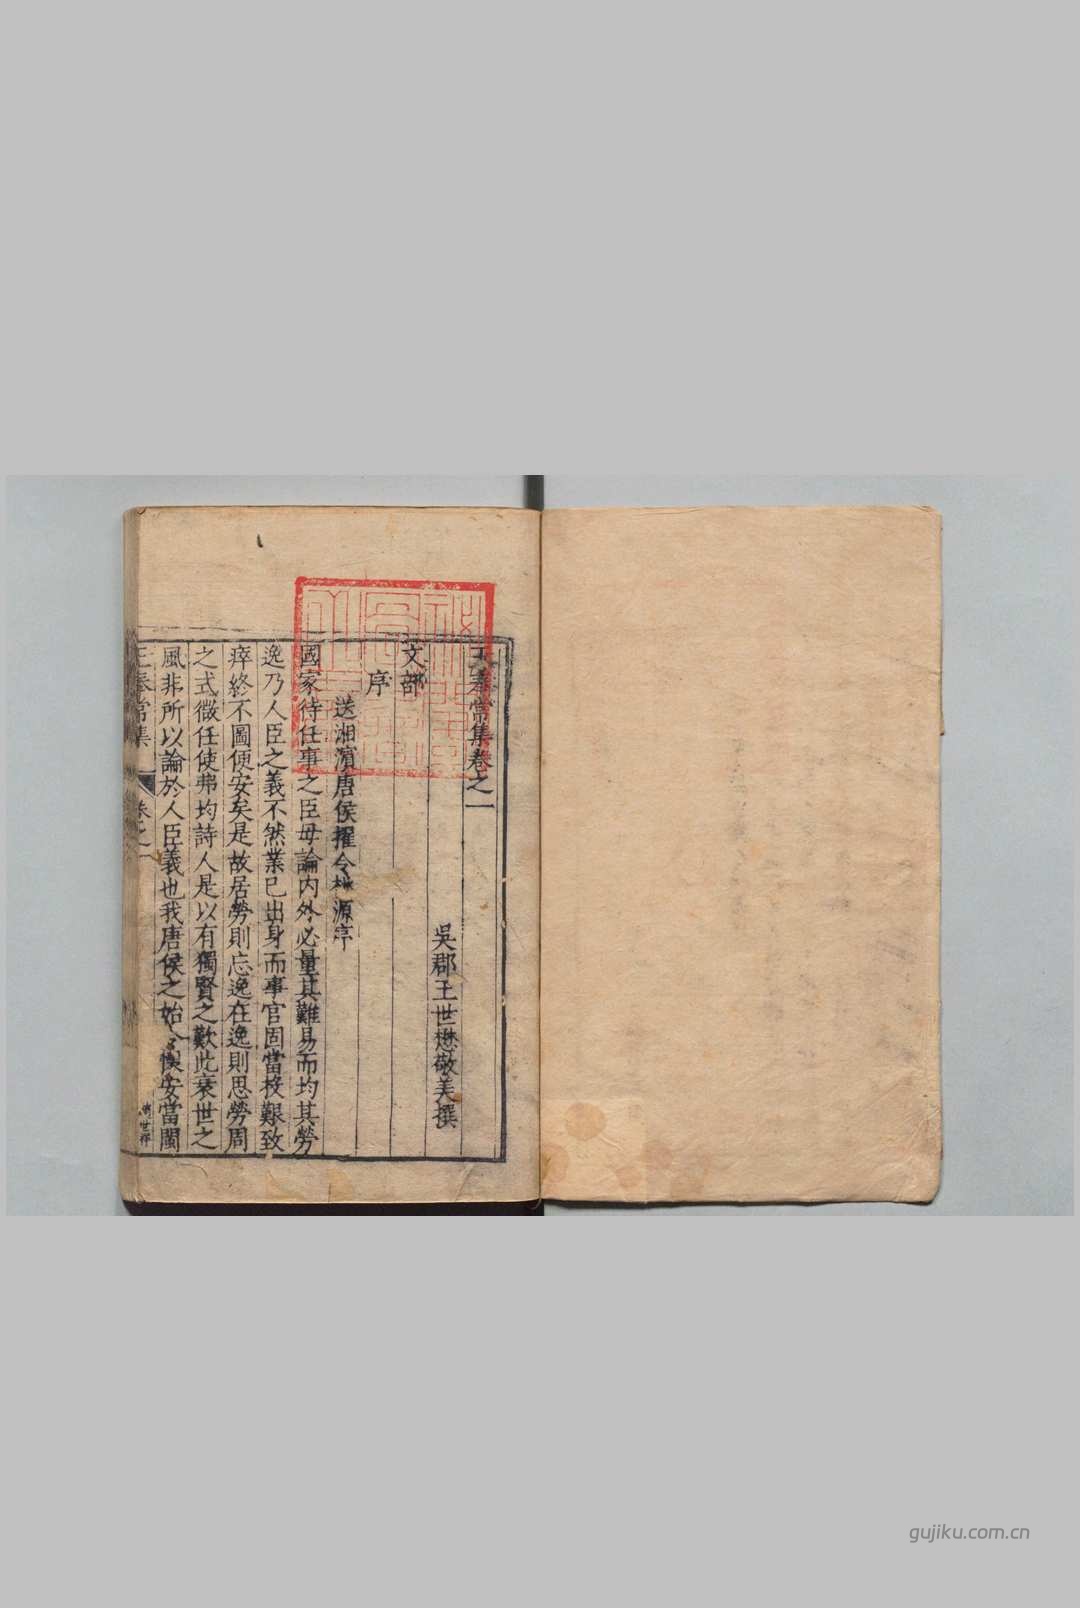 王奉常集卷之一
吳郡王世懋敬美撰
文部
序
送湘濵唐侯擢令桃源序
國家待任事之臣毋論内外必量其難易而均其勞
逸乃人臣之義不然業已出身而事官固當投艱致
瘁終不圖便安矣是故居勞則忘逸在逸則思勞周
之式微任使弗均詩人是以有獨賢之歎此衰世之
風非所以論於人臣義也我唐侯之始令惧安當閩
王奉常集
卷之一
gujiku.com.cn